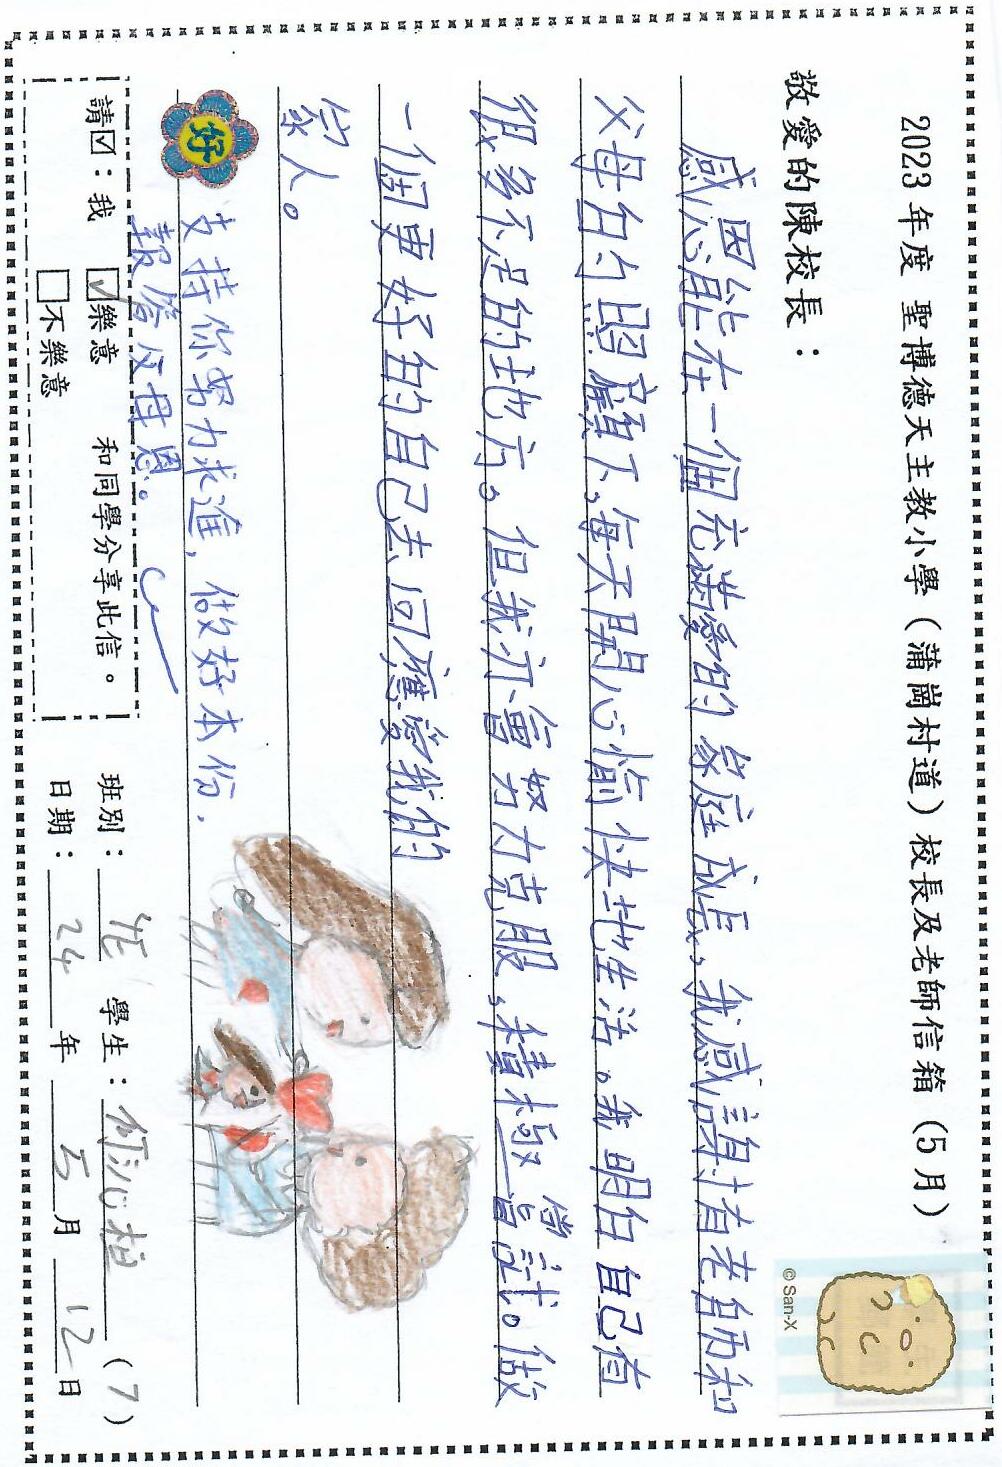 2023年度 聖博德天主教小學（蒲崗村道）校長及老師信箱（5月）
© San-X
敬愛的陳校長：
感恩能在一個充滿愛的家庭成長，我感謝有老師和
父母的照顧下，每天開心愉快地生活。我明白自己有
很多不足的地方。但我亦會努力克服，積極嘗試。做
一個更好的自己去回應愛我的
家人。
好
支持你努力求進，做好本份，
報答父母恩。
請☑：我 ☑樂意 和同學分享此信。
□不樂意
班別： 學生：何沁 （7）
日期：24年5月12日